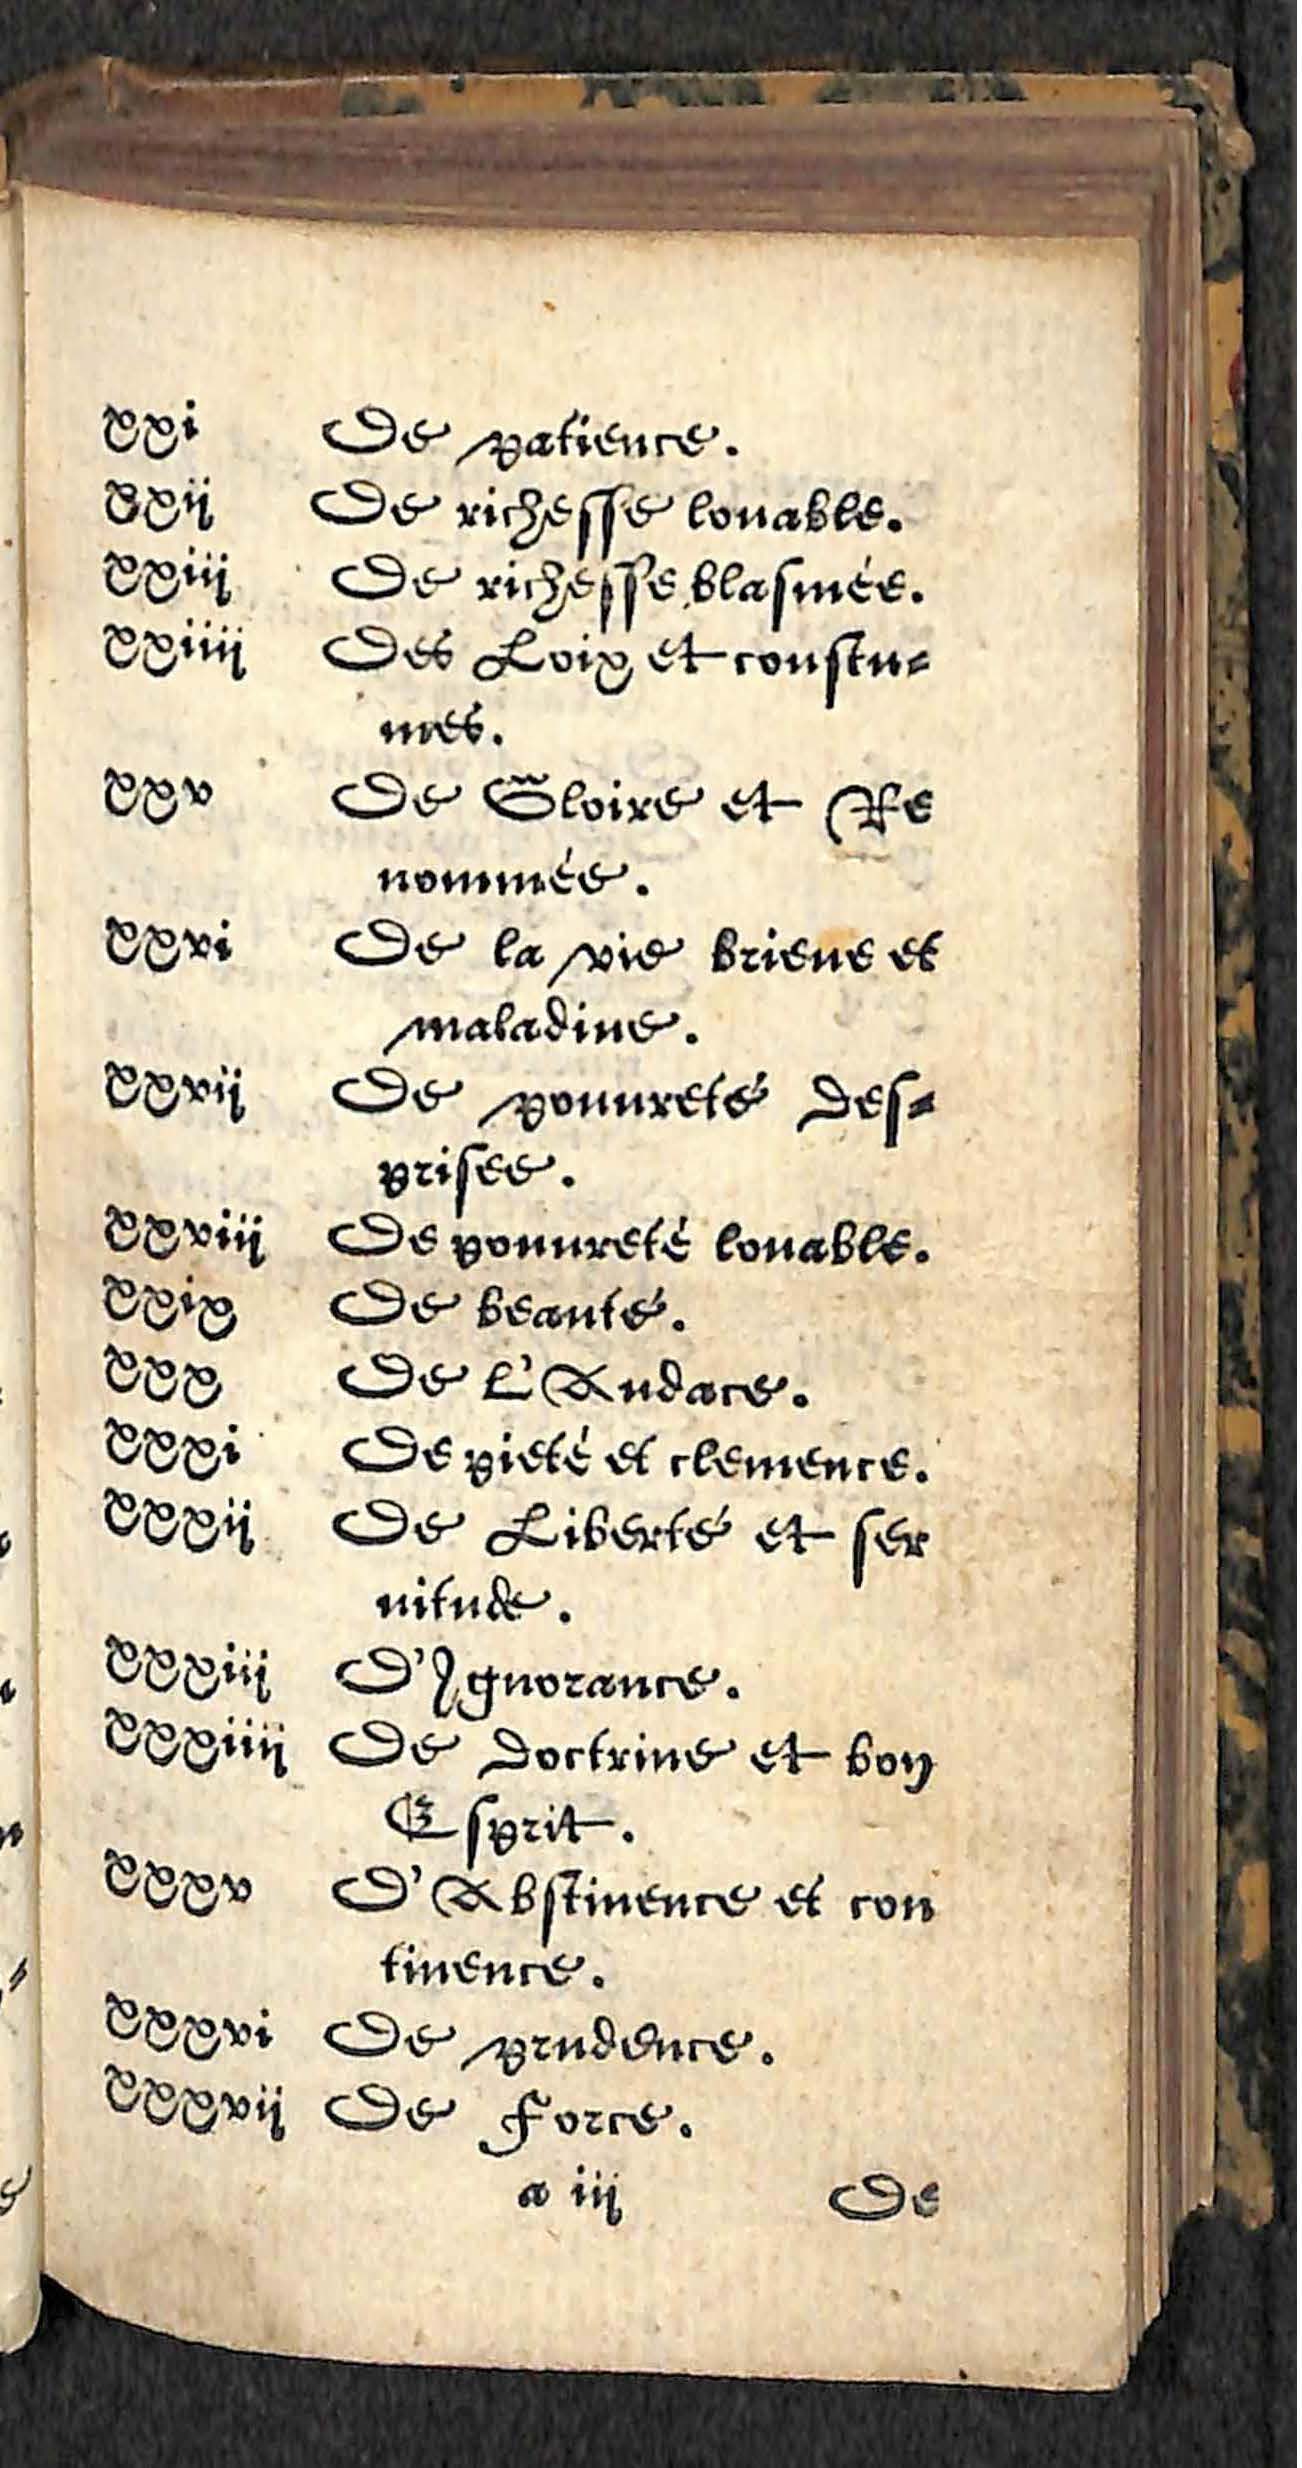 xxi De patience.
xxii De richesse louable.
xxiii De richesse blasmée.
xxiiii Des Loix et coustu-
mes.
xxv De Gloire et Re
nommée.
xxvi De la vie brieue et
maladiue.
xxvii De pouureté des-
prisee.
xxviii De pouureté louable.
xxix De beauté.
xxx De L'Audace.
xxxi De pieté et clemence.
xxxii De Liberté et ser
uitude.
xxxiii D'Ignorance.
xxxiiii De doctrine et bon
Esprit.
xxxv D'Abstinence et con
tinence.
xxxvi De prudence.
xxxvii De Force.
a iij De